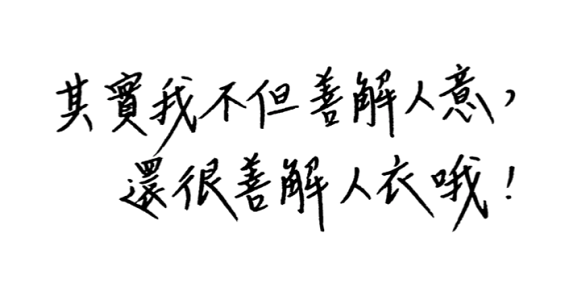 其實我不但善解人意，
還很善解人衣哦！